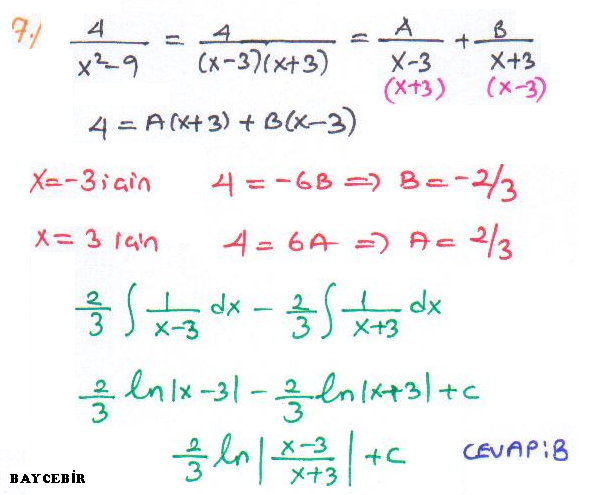 7.) 4/(x²-9) = 4/((x-3)(x+3)) = A/(x-3) + B/(x+3)
(x+3) (x-3)
4 = A(x+3) + B(x-3)
x=-3 için 4 = -6B => B = -2/3
x= 3 için 4 = 6A => A = 2/3
2/3 ∫ 1/(x-3) dx - 2/3 ∫ 1/(x+3) dx
2/3 ln|x-3| - 2/3 ln|x+3| + c
2/3 ln|(x-3)/(x+3)| + c CEVAP:B
BAYCEBİR